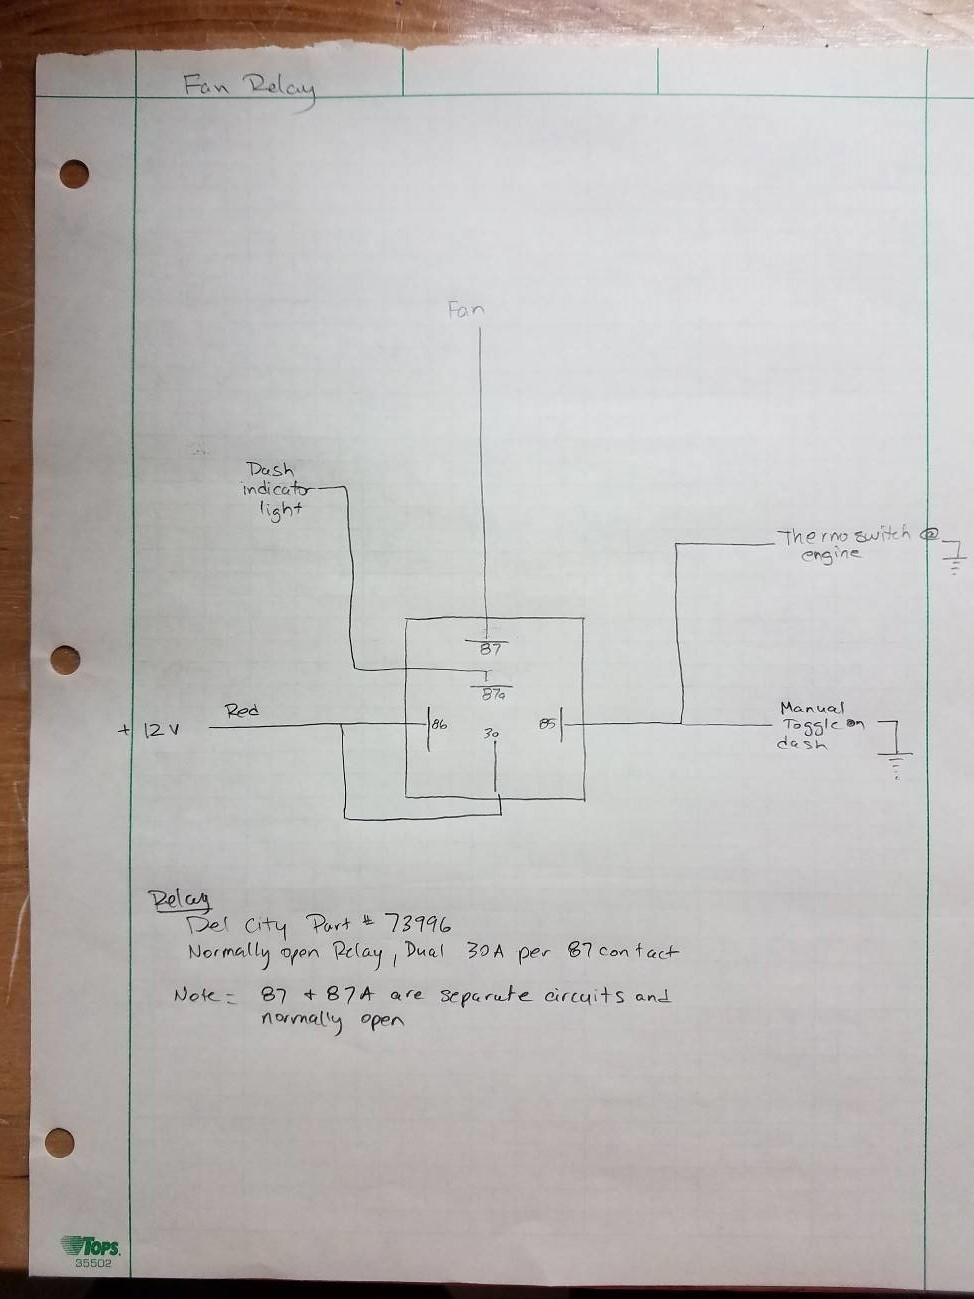 Fan Relay
Fan
Dash
indicator
light
Thermo switch @
engine
87
87a
Red
+ 12 V
86
30
85
Manual
Toggle on
dash
Relay
Del City Part # 73996
Normally open Relay, Dual 30A per 87 contact
Note = 87 + 87A are separate circuits and
normally open
TOPS.
35502